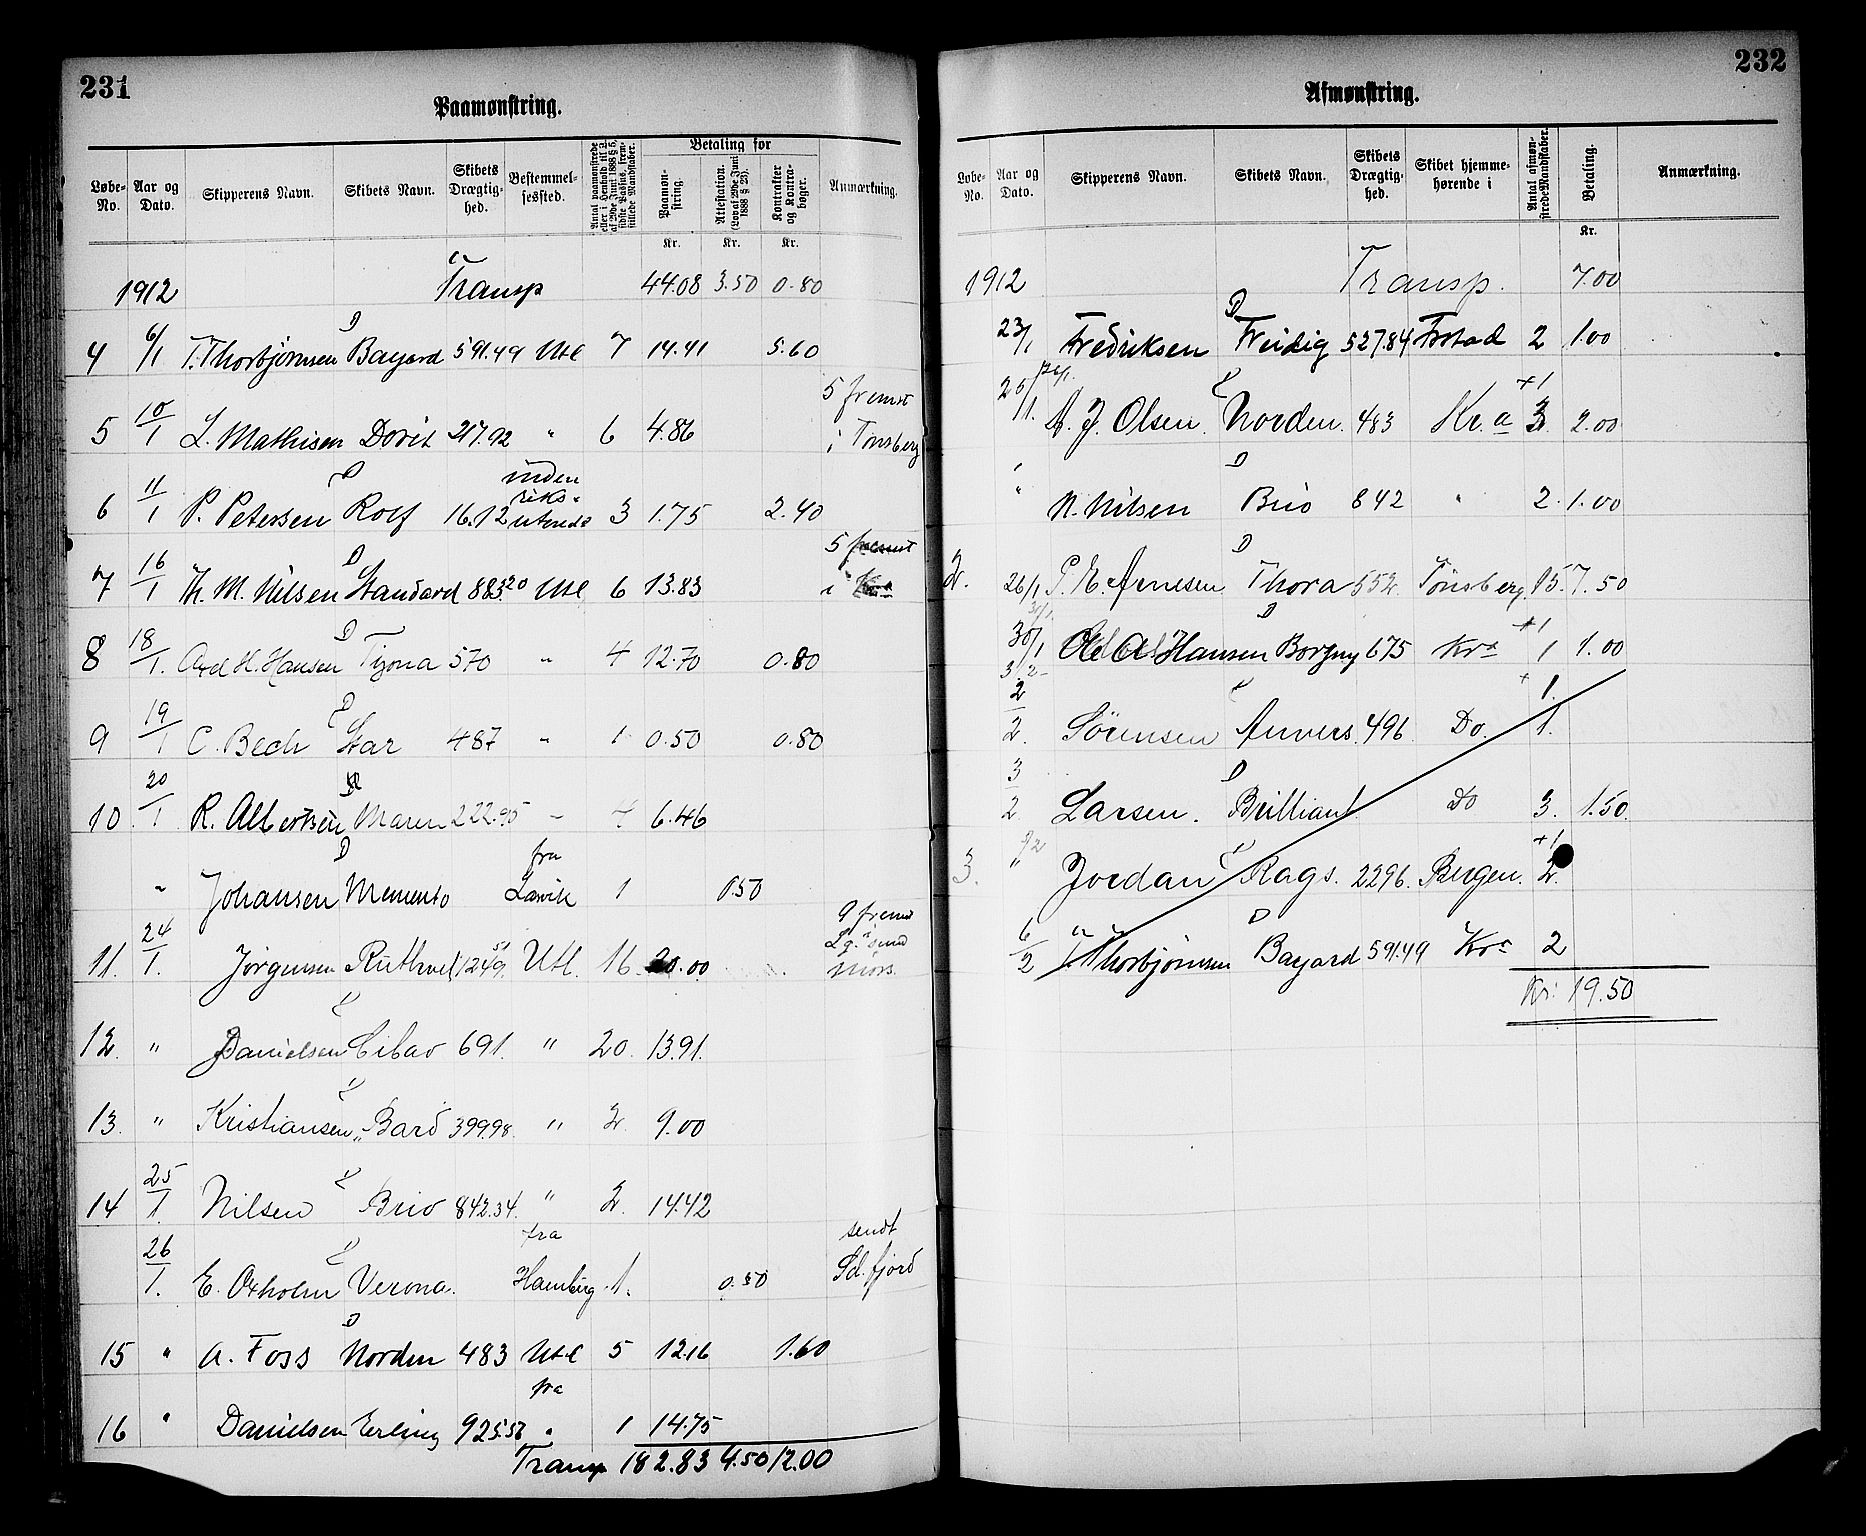 231
Paamønstring.
Løbe-No. Aar og Dato. Skipperens Navn. Skibets Navn. Skibets Drægtighed. Bestemmelsessted. Betaling for Anmærkning.
Paamønstring. Attestation. (Lov af 29de Juni 1888 § 23). Kontrakter og Kontrabøger.
Kr. Kr. Kr.
1912 Transp 44.08 3.50 0.80
4 6/1 T. Thorbjørnsen D Bayard 591.49 Utl 7 14.41 5.60
5 10/1 L. Mathisen Dorit 217.92 " 6 4.86 5 fremst i Tønsberg
6 11/1 P. Petersen D Rolf 16.12 inden riks 3 1.75 2.40
7 16/1 Th. M. Nilsen D Standard 883.20 Utl 6 13.83 5 fremst i Kra
8 18/1. Axel H. Hansen D 570 " 4 12.70 0.80
9 19/1 C. Bech Star 487 " 1 0.50 0.80
10 20/1 R. Albertsen Maren 222.95 " 4 6.46
" Johansen D Memento fra Larvik 1 0.50
11. 24/1. Jørgensen Ruthwel 1249.51 Utl. 16 20.00 9 fremst
12. " Danielsen Cibao 691. " 20. 13.91.
13. " Kristiansen " Bard 399.98. " 2. 9.00
14 25/1. Nilsen Brio 842.34. " 2. 14.42
26/1. E. Oxholm Verona. fra Hamburg 1. 0.50 sendt Sd.fjord
15 " A. Foss D Norden 483 Utl 5 12.16 1.60
16 " Danielsen Erling 925.57 fra " 1 14.75
Transp 182.83 4.50 12.00
232
Afmønstring.
Løbe-No. Aar og Dato. Skipperens Navn. Skibets Navn. Skibets Drægtighed. Skibet hjemmehørende i Antal afmønstrede Mandskaber. Betaling. Anmærkning.
Kr.
1912 Transp. 7.00
23/1 Fredriksen D Freidig 527.84 Frstad 2 1.00
25/1. A. J. Olsen. Norden. 483 Kr.a +1 3 2.00
" N. Nilsen D Brio 842 " 2. 1.00
2. 26/1 P. E. Arnesen D Thora 552. Tønsberg. 15. 7.50
30/1 Ole A Hansen D Borgny 675 Kra +1 1 1.00
2/2. Sörensen Anvers. 496. Do. + 1. 1.
3/2 Larsen. D Brilliant Do 3. 1.50.
3. " Jordan Rags. 2296. Bergen. +1 2.
6/2 T. Thorbjørnsen D Bayard 591.49 Kra 2
Kr: 19.50